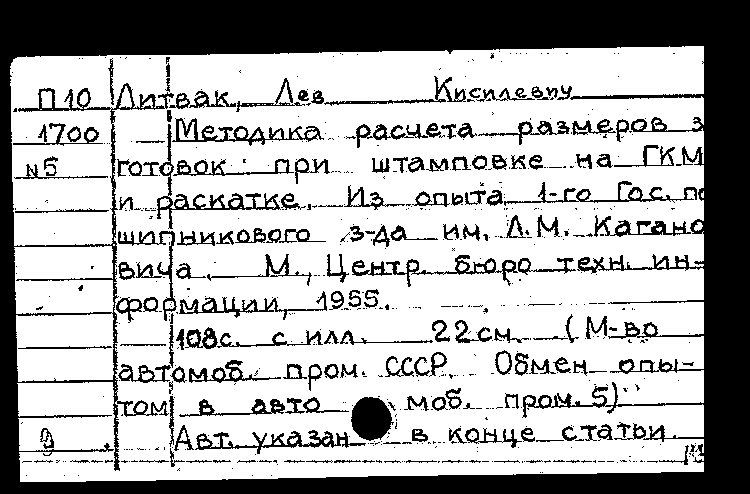 П10 Литвак, Лев Кисилевич
1700 Методика расчета размеров з
N5 готовок при штамповке на ГКМ
и раскатке. Из опыта 1-го Гос. по
шипникового з-да им. Л.М. Кагано
вича. М., Центр. бюро техн. ин-
формации, 1955.
108с. с илл. 22см. (М-во
автомоб. пром. СССР. Обмен опы-
том в авто моб. пром. 5)
Авт. указан в конце статьи.